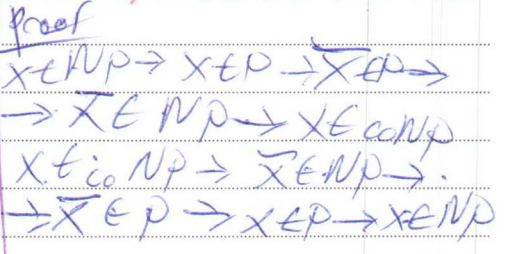 Proof
x∈NP→ x∈P →x̅∈P→
→ x̅∈ NP→ x∈coNP
x∈coNP → x̅∈NP→.
→x̅∈P →x∈P→x∈NP